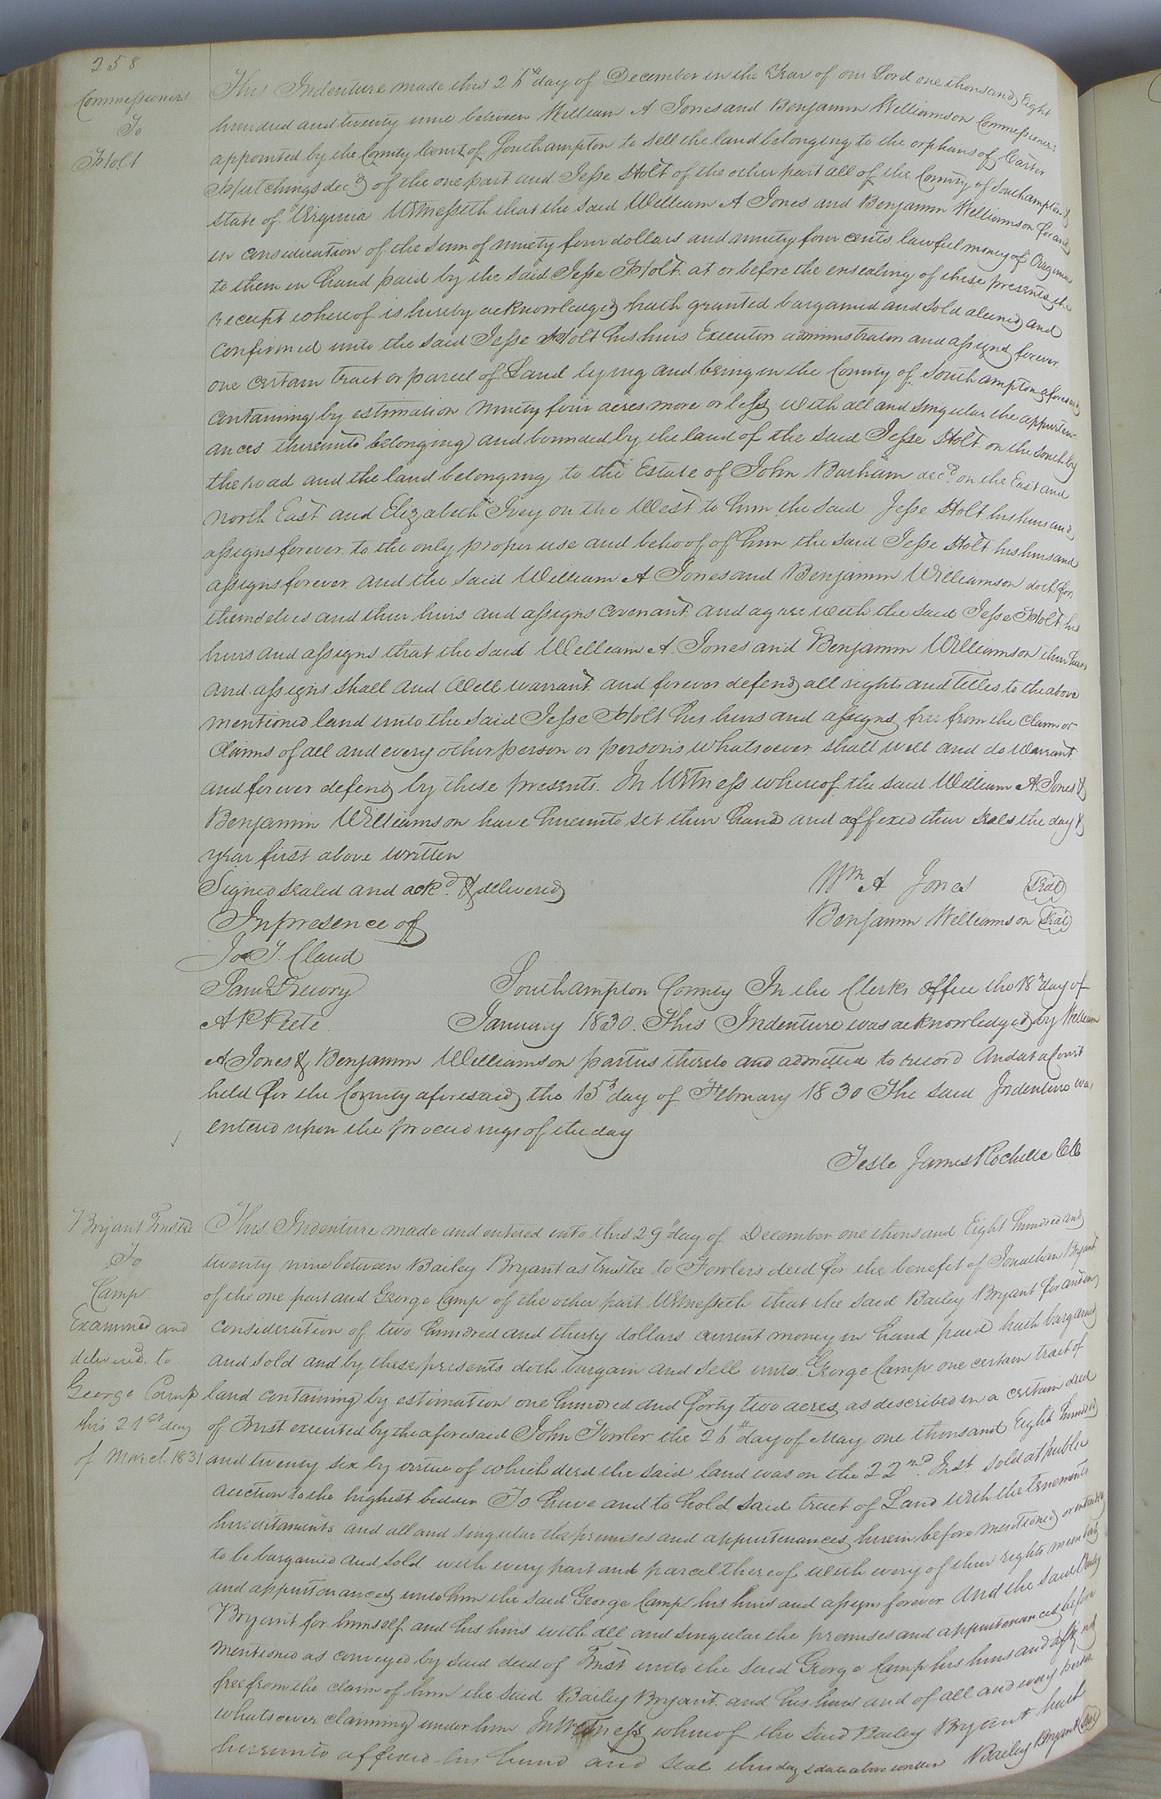 258
Commissioners
To
Holt
This Indenture made this 26th day of December in the Year of our Lord one thousand Eight
hundred and twenty nine between William A Jones and Benjamin Williamson Commissioners
appointed by the County Court of Southampton to sell the land belonging to the orphans of Carter
Hutchings decd of the one part and Jesse Holt of the other part all of the County of Southampton &
State of Virginia Witnesseth that the said William A Jones and Benjamin Williamson for and
in consideration of the sum of ninety four dollars and ninety four cents lawful money of Virginia
to them in hand paid by the said Jesse Holt at or before the ensealing of these presents the
receipt whereof is hereby acknowledged hath granted bargained and sold aliened and
confirmed unto the said Jesse Holt his heirs Executor administrators and assigns forever
one certain tract or parcel of Land lying and being in the County of Southampton aforesaid
containing by estimation Ninety four acres more or less with all and singular the appurten-
ances thereunto belonging and bounded by the land of the said Jesse Holt on the South by
the road and the land belonging to the Estate of John Barham decd on the East and
North East and Elizabeth Ivey on the West to him the said Jesse Holt his heirs and
assigns forever to the only proper use and behoof of him the said Jesse Holt his heirs and
assigns forever and the said William A Jones and Benjamin Williamson doth for
themselves and their heirs and assigns covenant and agree with the said Jesse Holt his
heirs and assigns that the said William A. Jones and Benjamin Williamson their heirs
and assigns shall and Well warrant and forever defend all rights and Titles to the above
mentioned land unto the said Jesse Holt his heirs and assigns free from the claim or
Claims of all and every other person or persons whatsoever shall well and do warrant
and forever defend by these presents. In Witness whereof the said William A. Jones &
Benjamin Williamson have hereunto set their hand and affixed their seals the day &
year first above written
Signed sealed and ackd & delivered
In presence of
Wm A Jones Seal
Benjamin Williamson Seal
Jo T. Claud
Saml Drewry
A P Peete
Southampton County In the Clerks office the 18th day of
January 1830. This Indenture was acknowledged by William
A Jones & Benjamin Williamson parties thereto and admitted to record And at a Court
held for the County aforesaid the 15th day of February 1830 The said Indenture was
entered upon the proceedings of the day
Teste James Rochelle CC
Bryant Trustee
To
Camp
Examined and
delivered to
George Camp
this 21st day
of March 1831
This Indenture made and entered into this 29th day of December one thousand Eight hundred and
twenty nine between Bailey Bryant as trustee to Fowlers deed for the benefit of Jonathan Bryant
of the one part and George Camp of the other part Witnesseth that the said Bailey Bryant for and in
consideration of two hundred and thirty dollars current money in hand paid hath bargained
and sold and by these presents doth bargain and sell unto George Camp one certain tract of
land containing by estimation one hundred and forty two acres as described in a certain deed
of Trust executed by the aforesaid John Fowler the 26th day of May one thousand Eight hundred
and twenty six by virtue of which deed the said land was on the 22nd Inst sold at public
auction to the highest bidder To have and to hold said tract of Land with the tenements
hereditaments and all and singular the premises and appurtenances herein before mentioned or intended
to be bargained and sold with every part and parcel thereof with every of their rights members
and appurtenances unto him the said George Camp his heirs and assigns forever And the said Bailey
Bryant for himself and his heirs with all and singular the premises and appurtenances before
mentioned as conveyed by said deed of Trust unto the said George Camp his heirs and assigns
free from the claim of him the said Bailey Bryant and his heirs and of all and every person
whatsoever claiming under him In Witness whereof the said Bailey Bryant hath
hereunto affixed his hand and seal this day & date above written Bailey Bryant Seal